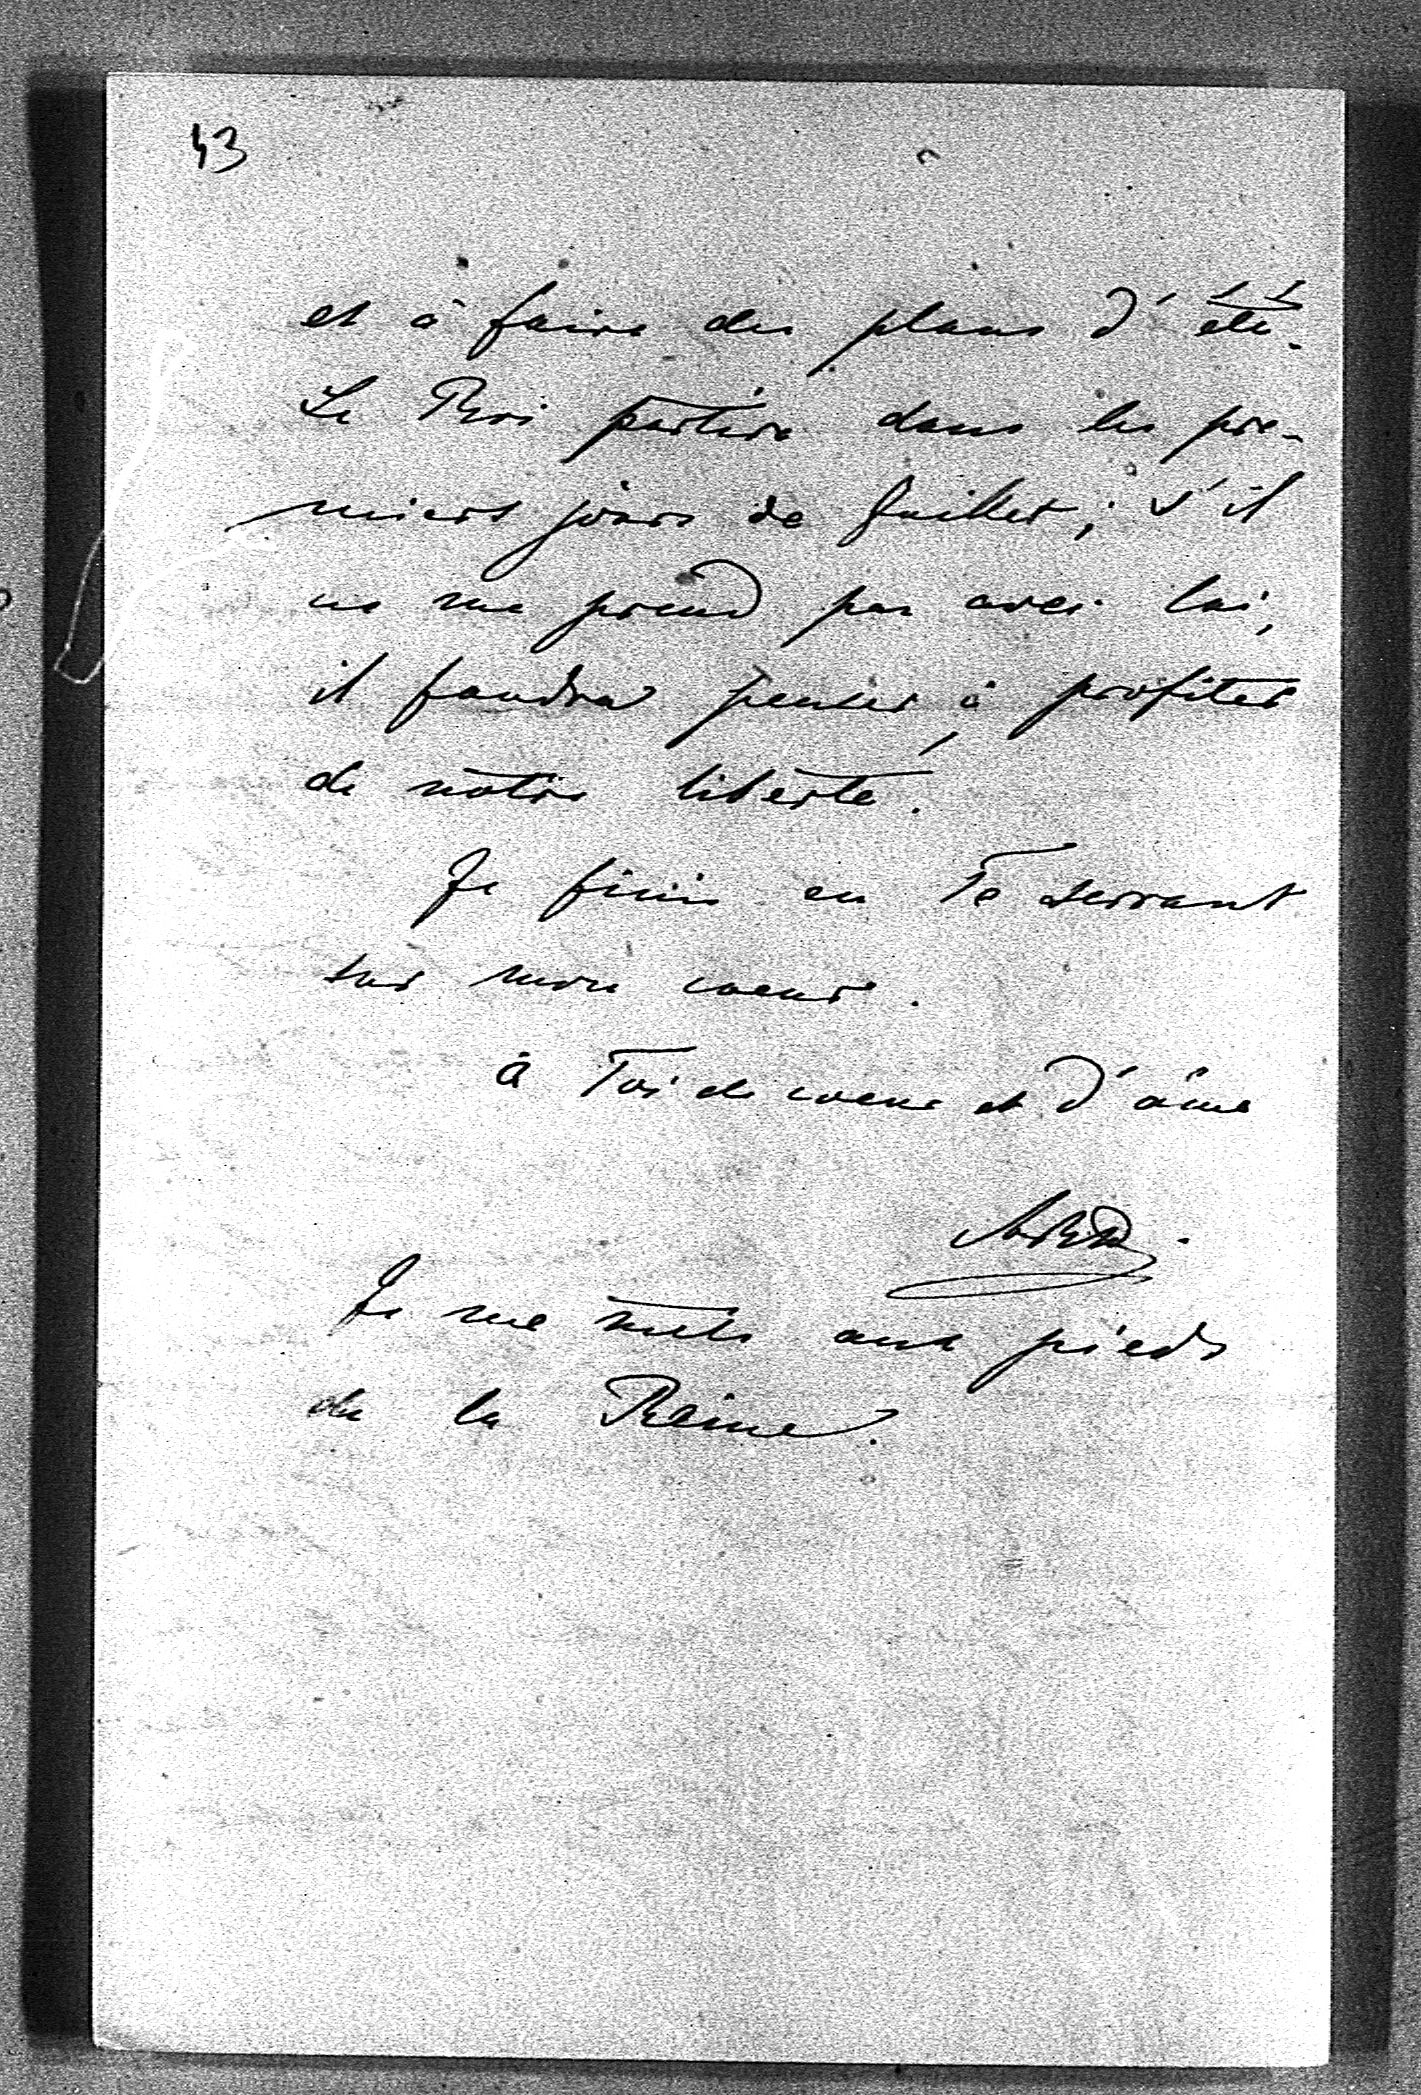 43
et à faire des plans d'été.
Le Roi partira dans les pre-
miers jours de Juillet; s'il
ne me prend pas avec lui,
il faudra penser à profiter
de notre liberté.
Je finis en Te serrant
sur mon coeur.
à Toi de coeur et d'âme
Je me mets aux pieds
de la Reine.